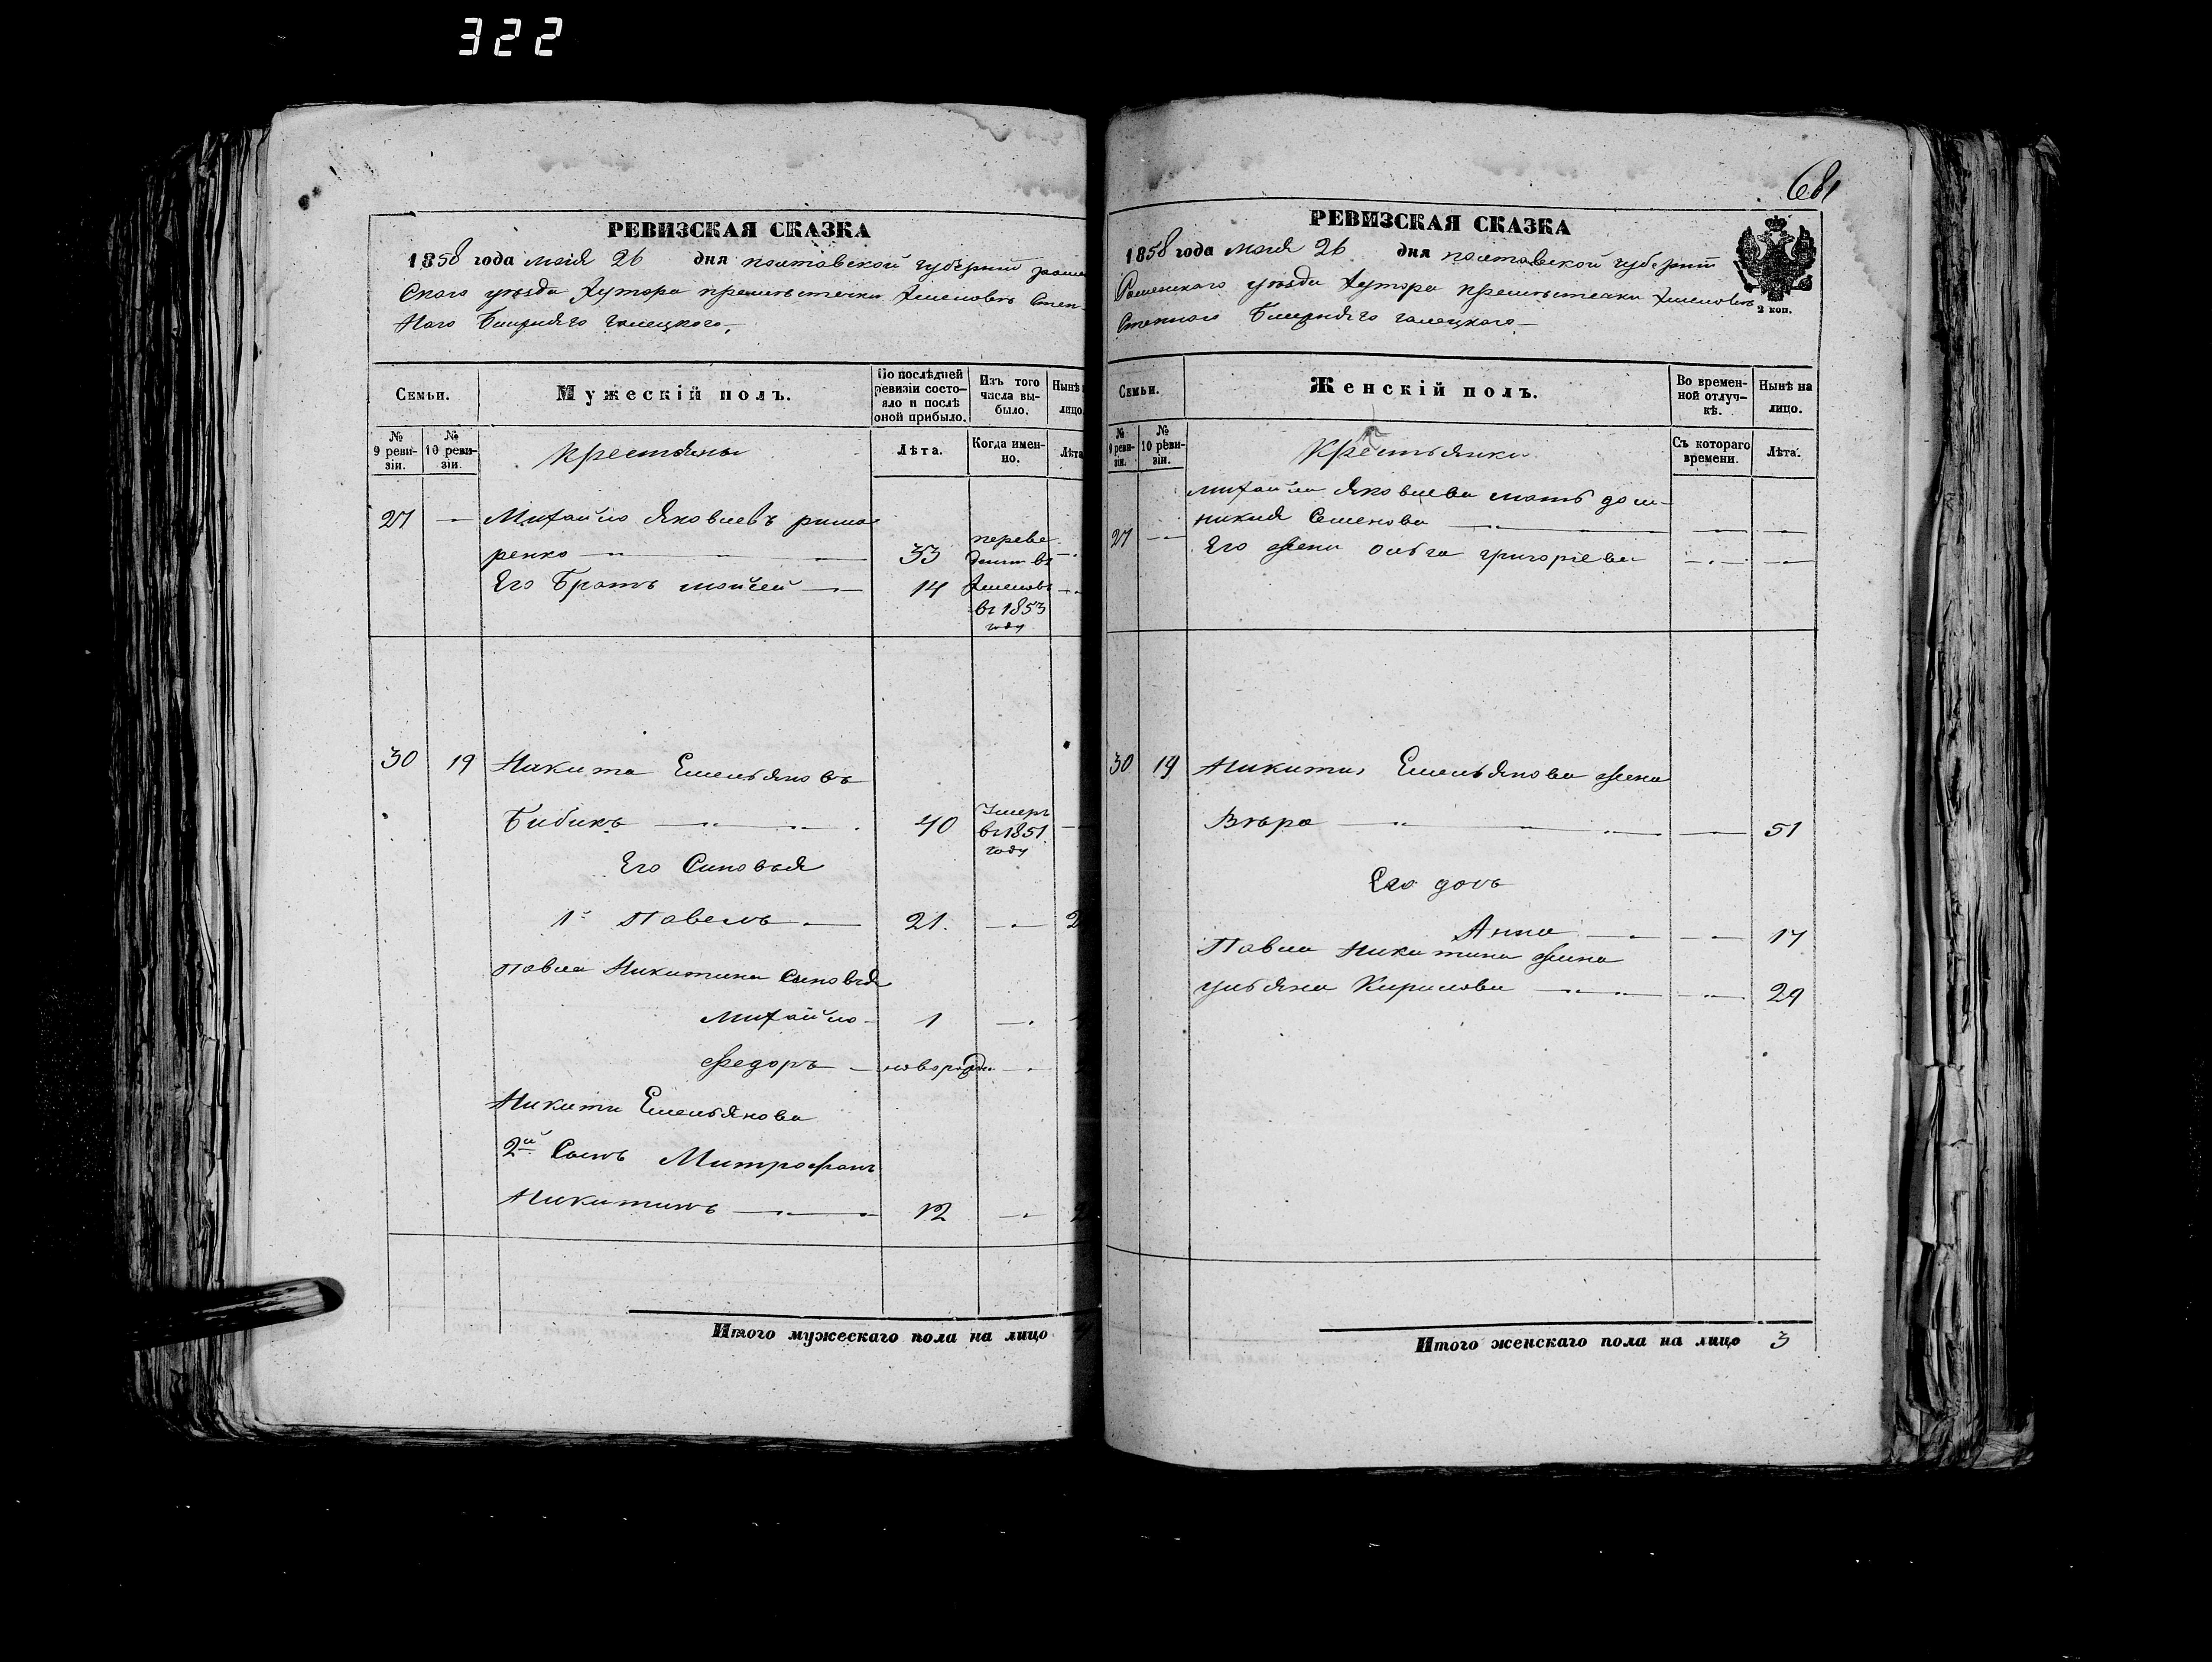 322
РЕВИЗСКАЯ СКАЗКА
1858 года мая 26 дня полтавской губернии роме
Ского уезда Хутора
Ного галецкого
Семьи.
Мужескій полъ.
По послѣдней ревизіи состояло и послѣ оной прибыло.
Изъ того числа выбыло.
Нынѣ
лицо
№ 9 ревизіи.
№ 10 ревизіи.
крестьяны
Лѣта.
Когда именно.
Лѣта
27 — Михайло Яковлевъ рима
ренко — 33 переве
Его Братъ мойсей — 14 дены въ
въ 1853
году
30 19 Никита Емельяновъ
Бибикъ — 40 Умеръ
въ 1851
году
Его Синовья
1й Павелъ — 21. — 2
Павла Никитина Синовья
Михайло — 1 —
Федоръ — новорожден —
Никиты Емельянова
2й Сынъ Митрофанъ
Никитинъ — 12 — 2
Итого мужескаго пола на лицо
681
РЕВИЗСКАЯ СКАЗКА
1858 года мая 26 дня полтавской губернии
Роменского уезда Хутора
Степного галецкого —
2 коп.
Семьи.
Женскій полъ.
Во временной отлучкѣ.
Нынѣ на лицо.
№ 9 ревизіи.
№ 10 ревизіи.
Крестьянки
Съ котораго времени.
Лѣта.
михайла Яковлева мать дом-
никия Семенова — — —
27 — Его жена ольга григориева — —
30 19 Никиты Емельянова жена
Вѣра — — 51
Его дочь
Анна — — 17
Павла Никитина жена
ульяна Кирилова — — 29
Итого женскаго пола на лицо 3